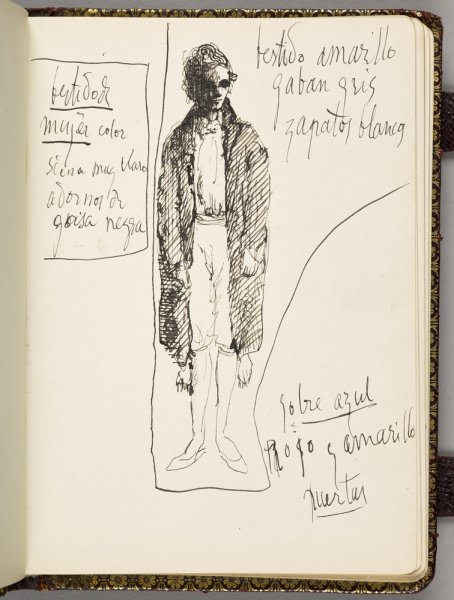 bestido de
mujer color
siena muy claro
adornos de
gaisa negra
bestido amarillo
gaban gris
zapatos blancos
sobre azul
rojo y amarillo
puertas